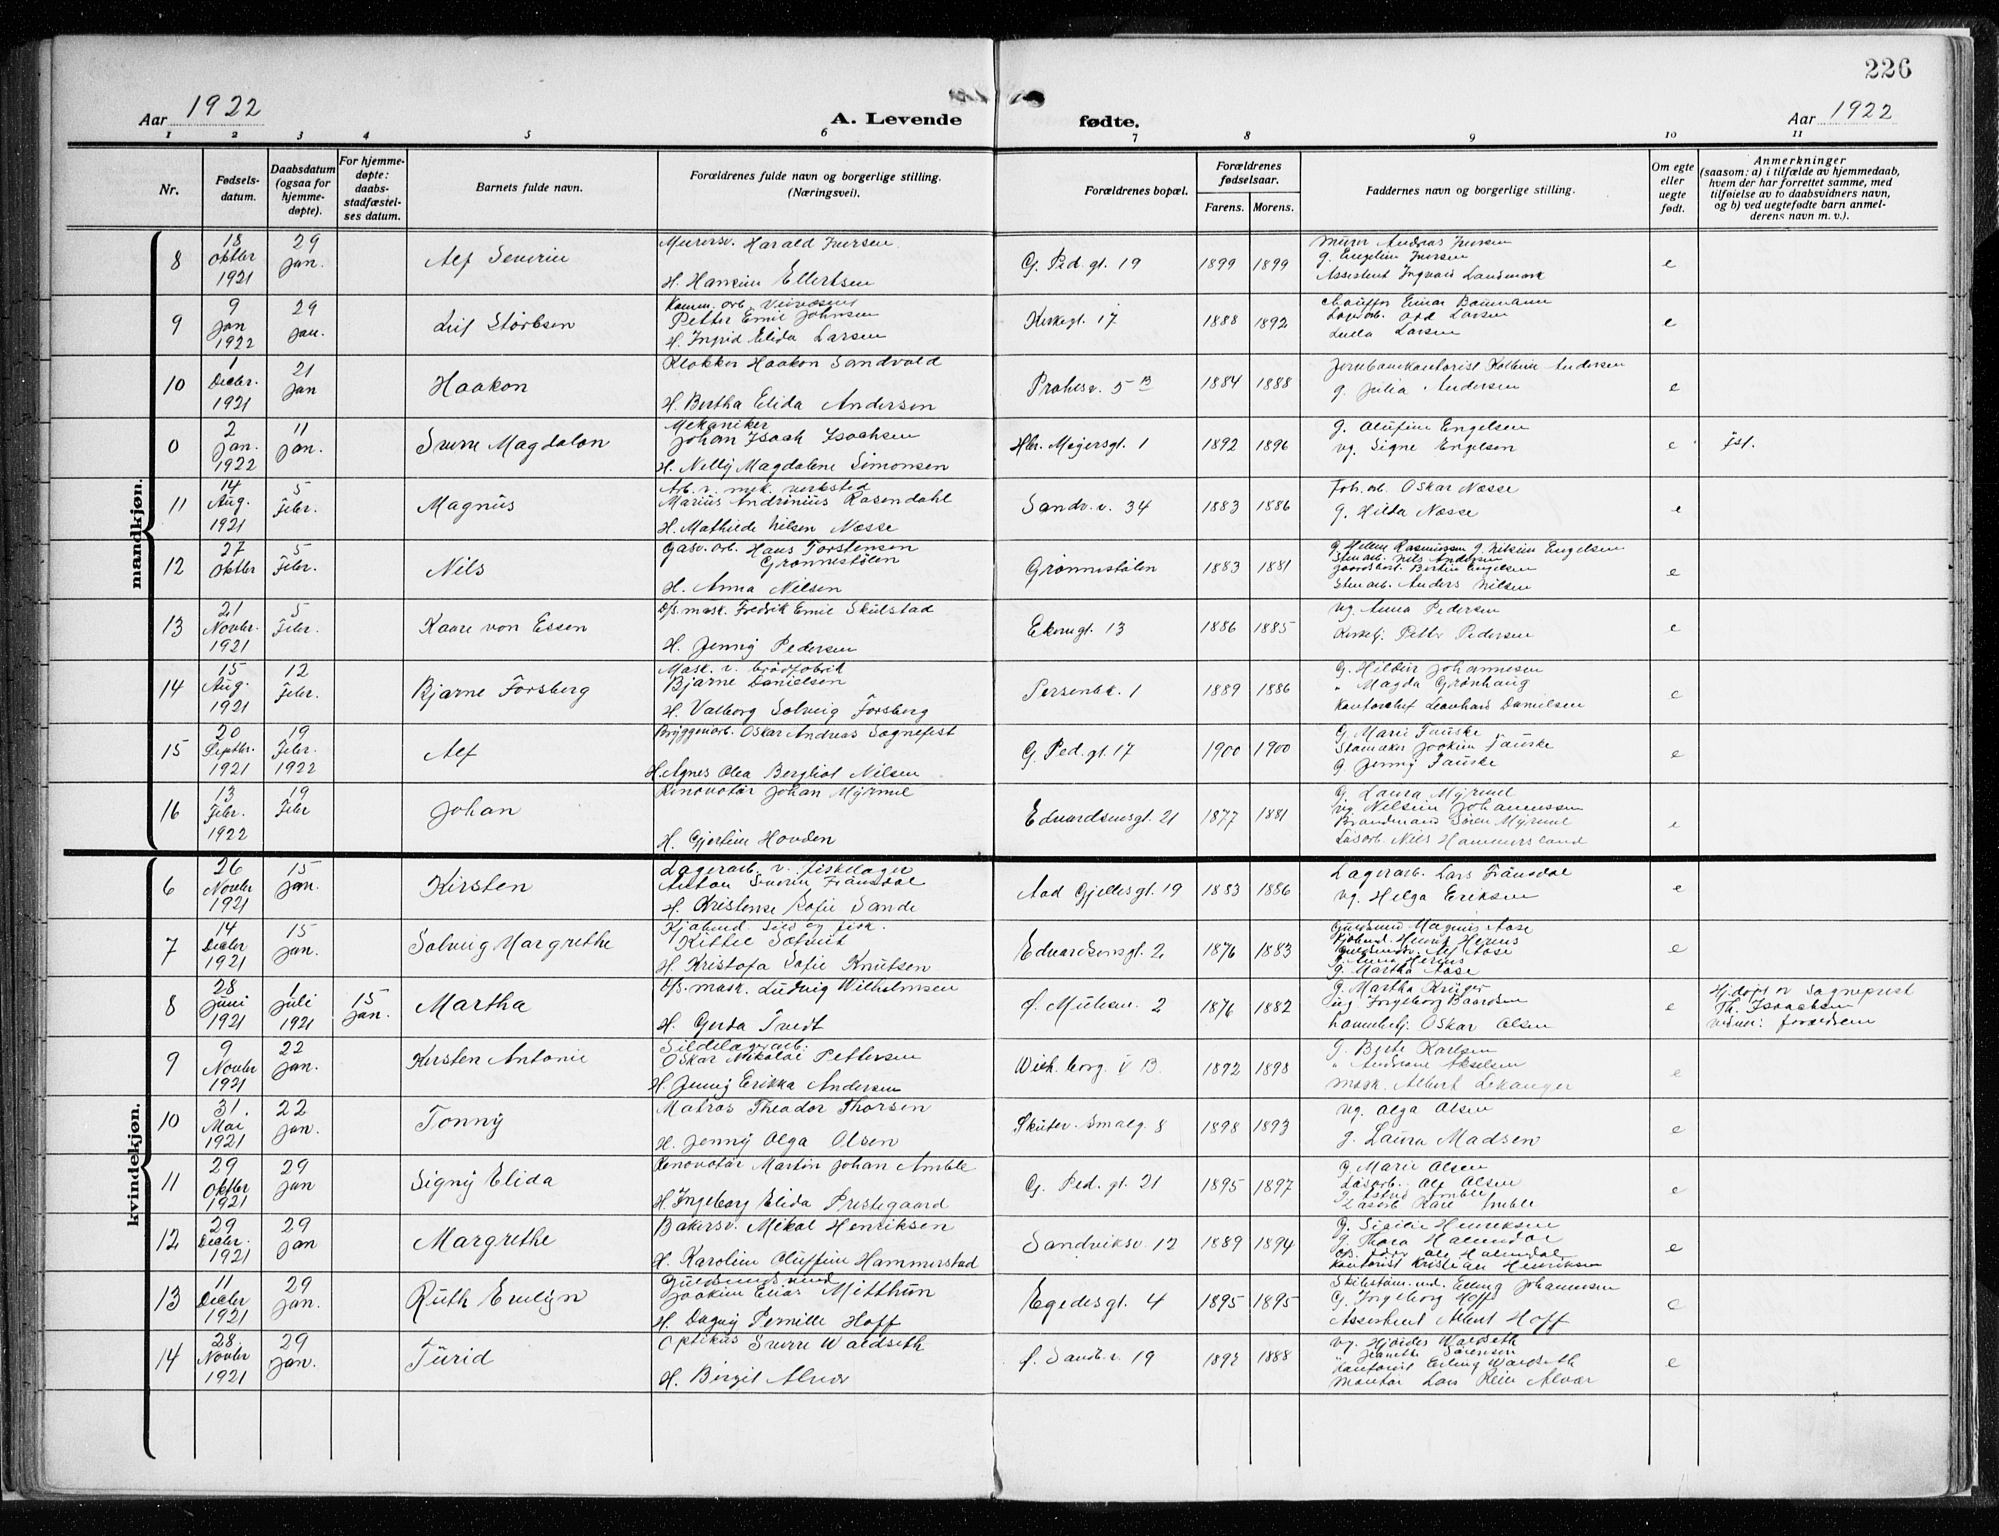 226
Aar 1922
A. Levende fødte.
Aar 1922
1 2 3 4 5 6 7 8 9 10 11
Nr.
Fødsels-
datum.
Daabsdatum
(ogsaa for
hjemme-
døpte).
For hjemme-
døpte:
daabs-
stadfæstel-
ses datum.
Barnets fulde navn.
Forældrenes fulde navn og borgerlige stilling.
(Næringsvei).
Forældrenes bopæl.
Forældrenes
fødselsaar.
Farens. Morens.
Faddernes navn og borgerlige stilling.
Om egte
eller
uegte
født.
Anmerkninger
(saasom: a) i tilfælde av hjemmedaab,
hvem der har forrettet samme, med
tilføielse av to daabsvidners navn,
og b) ved uegtefødte barn anmel-
derens navn m. v.).
mandkjøn.
8
18 Oktbr 1921
29 Jan.
Alf Severin
Murersv. Harald Iversen
H. Hansine Ellertsen
G. Ped. gt. 19
1899 1899
Murer Andreas Iversen
g. Engeline Iversen
Assistent Ingvald Landmark
e
9
9 Jan 1922
29 Jan.
Leif Størksen
Komm. arb. veivæsenet
Petter Emil Johnsen
H. Ingrid Elida Larsen
Kirkegt. 17
1888 1892
Chauffør Einar Baumann
Larsen
Larsen
e
10
1 Decbr. 1921
21 Jan
Haakon
Klokker Haakon Sandvold
H. Bertha Elida Andersen
Prahlsv. 5 B
1884 1888
Jernbanekontorist Andersen
g. Julia Andersen
e
0
2 Jan. 1922
11 Jan.
Sverre Magdalon
Mekaniker
Johan Isach Isachsen
H. Nelly Magdalene Simonsen
Hbr. Meyersgt. 1
1892 1896
g. Olufine Engelsen
vg. Signe Engelsen
e
11
14 Aug. 1921
5 Febr.
Magnus
Arb. v. mek. verksted
Marius Andrinius Rosendahl
H. Mathilde Nilsen Næsse
Sandv. v. 34
1883 1886
Fob. arb. Oskar Næsse
g. Hilda Næsse
e
12
27 Oktbr
5 Febr.
Nils
Gasv. arb. Hans Torstensen
Grønnestølen
H. Anna Nilsen
Grønnestølen
1883 1881
g. Helene Rasmussen g. Engelsen
Stenarb. Nils Andersen
Bertin Engelsen
Stenarb. Anders Nilsen
e
13
21 Novbr. 1921
5 Febr.
Kaare von Essen
D/s mask. Fredrik Emil Skulstad
H. Jenny Pedersen
Ekregt. 13
1886 1885
vg. Anna Pedersen
Kirkebtj. Petter Pedersen
e
14
15 Aug. 1921
12 Febr.
Bjarne Forsberg
Mask. v. brødfabrik
Bjarne Danielsen
H. Valborg Solveig Forsberg
Persenbk. 1
1889 1886
g. Hildur Johannesen
" Magda Grønhaug
Kontorchef Leonhard Danielsen
e
15
20 Septbr. 1921
19 Febr. 1922
Alf
Bryggearb. Oskar Andreas Sognefest
H. Agnes Olea Bergliot Nilsen
G. Ped. gt. 17
1900 1900
G. Marie Fauske
Joakim Fauske
g. Jenny Fauske
e
16
13 Febr. 1922
19 Febr
Johan
Renovatør Johan Myrmel
H. Gjertine Hovden
Edvardsensgt. 21
1877 1881
g. Laura Myrmel
vg. Nilsine Johannessen
Brandmand Søren Myrmel
Løsarb. Nils Hammersland
e
kvindekjøn.
6
26 Novbr 1921
15 Jan.
Kirsten
Lagerarb. v. fiskelager
Anton Severin Frausdal
H. Kristense Sofie Sande
Aad Gjellesgt. 19
1883 1886
Lagerarb. Lars Frausdal
vg. Helga Eriksen
e
7
14 Decbr 1921
15 Jan.
Solveig Margrethe
Kjøbmd. sild og fisk.
Kittel Solvik
H. Kristofa Sofie Knutsen
Edvardsensgt. 2
1876 1883
Guldsmed Magnus Aase
Kjøbmd. Henrik Herius
Guldsmedsv. Alf Aase
g. Anna Herius
g. Martha Aase
e
8
28 Juni 1921
1 Juli 1921
15 Jan.
Martha
D/s mask. Ludvig Wilhelmsen
H. Gerda Tvedt
d. Mulesm. 2
1876 1882
g. Martha Krüger
ug Ingeborg Baardsen
Oskar Olsen
e
Hj. døpt av Sogneprest
Th. Isaachsen
vidner: forældrene
9
9 Novbr 1921
22 Jan.
Kirsten Antonie
Sildelagerarb.
Oskar Nikolai Pettersen
H. Jenny Erikka Andersen
Wich. borg. V B.
1892 1898
g. Berte Karlsen
" Andreane Akselsen
Mask. Albert Lekanger
e
10
31. Mai 1921
22 Jan.
Tonny
Matros Theodor Thorsen
H. Jenny Olga Olsen
Skutev. Smalg. 8
1898 1893
vg. Olga Olsen
g. Laura Madsen
e
11
29 Oktbr 1921
29 Jan
Signy Elida
Renovatør Martin Johan Amble
H. Ingeborg Elida Prestegaard
G. Ped. gt. 21
1895 1897
g. Marie Olsen
Løsarb. Alf Olsen
g. Astrid Amble
Løsarb Kåre Amble
e
12
29 Decbr. 1921
29 Jan
Margrethe
Bakersv. Mikal Henriksen
H. Karoline Oluffine Hammerstad
Sandviksv. 12
1889 1894
g. Sigilie Henriksen
g. Thora Halmdal
Ole Halmdal
Kontorist Kristian Henriksen
e
13
11 Decbr 1921
29 Jan.
Ruth Evelyn
Guldsmedsvend
Joakim Elias Mitthun
H. Dagny Pernille Hoff
Egedesgt. 4
1895 1895
Erling Johannessen
G. Ingeborg Hoff
Assistent Albert Hoff
e
14
28. Novbr 1921
29 Jan.
Turid
Optikus Sverre Waldseth
H. Birgit Alvær
d. Sandv. v. 19
1892 1888
vg. Hjørdis Waldseth
" Jeanette Sørensen
Kontorist Erling Waldseth
Montør Lars Rein Alvær
e